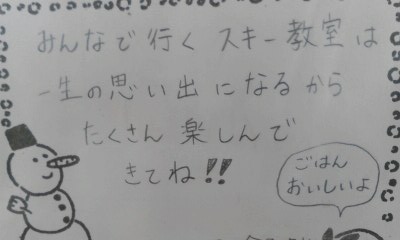 みんなで行くスキー教室は
一生の思い出になるから
たくさん楽しんで
きてね!!
ごはん
おいしいよ